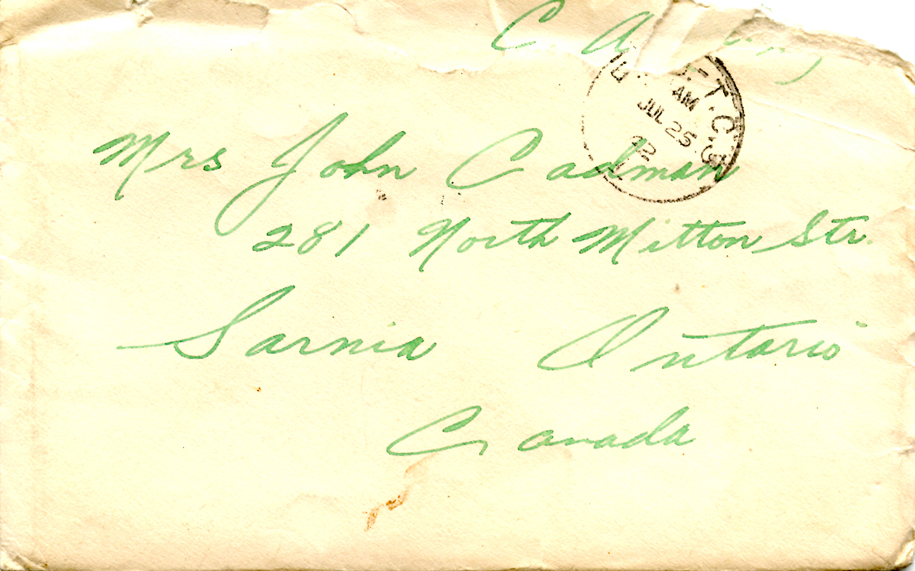 C. A.
AM
JUL 25
Mrs John Cadman
281 North Mitton Str.
Sarnia Ontario
Canada